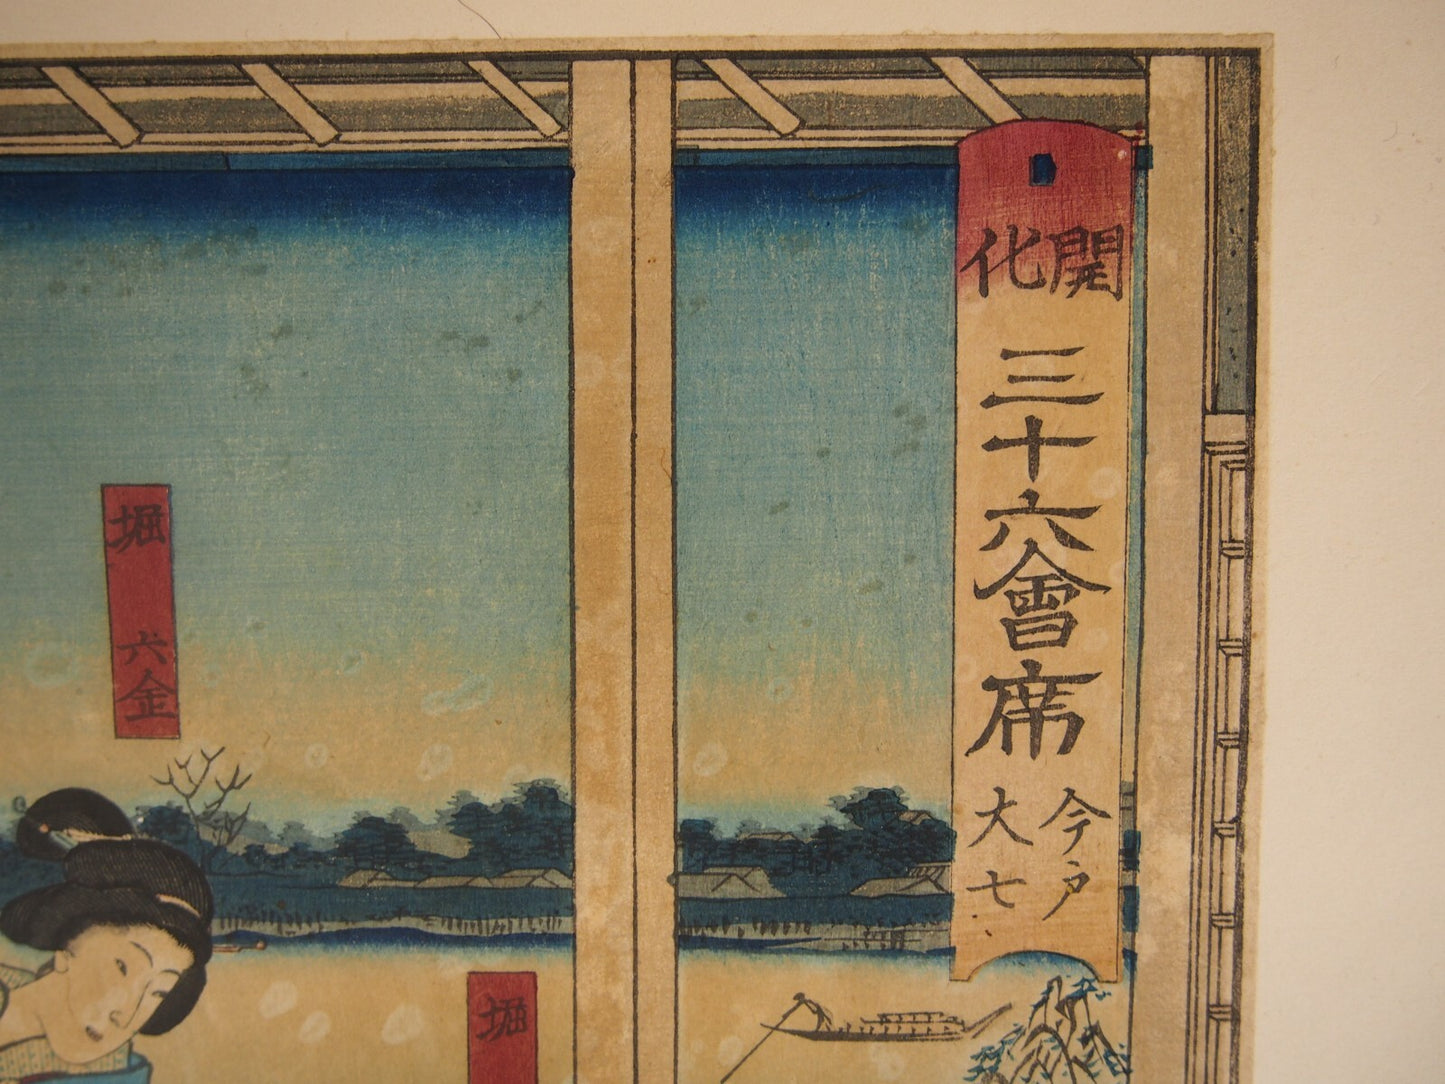 開化
三十六會席
今戸
大七
堀
堀
六金